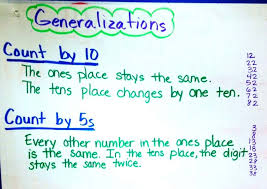 Generalizations
Count by 10
The ones place stays the same.
The tens place changes by one ten.
12
22
32
42
52
62
72
82
Count by 5s
Every other number in the ones place
is the same. In the tens place, the digit
stays the same twice.
3
8
13
18
23
28
33
38